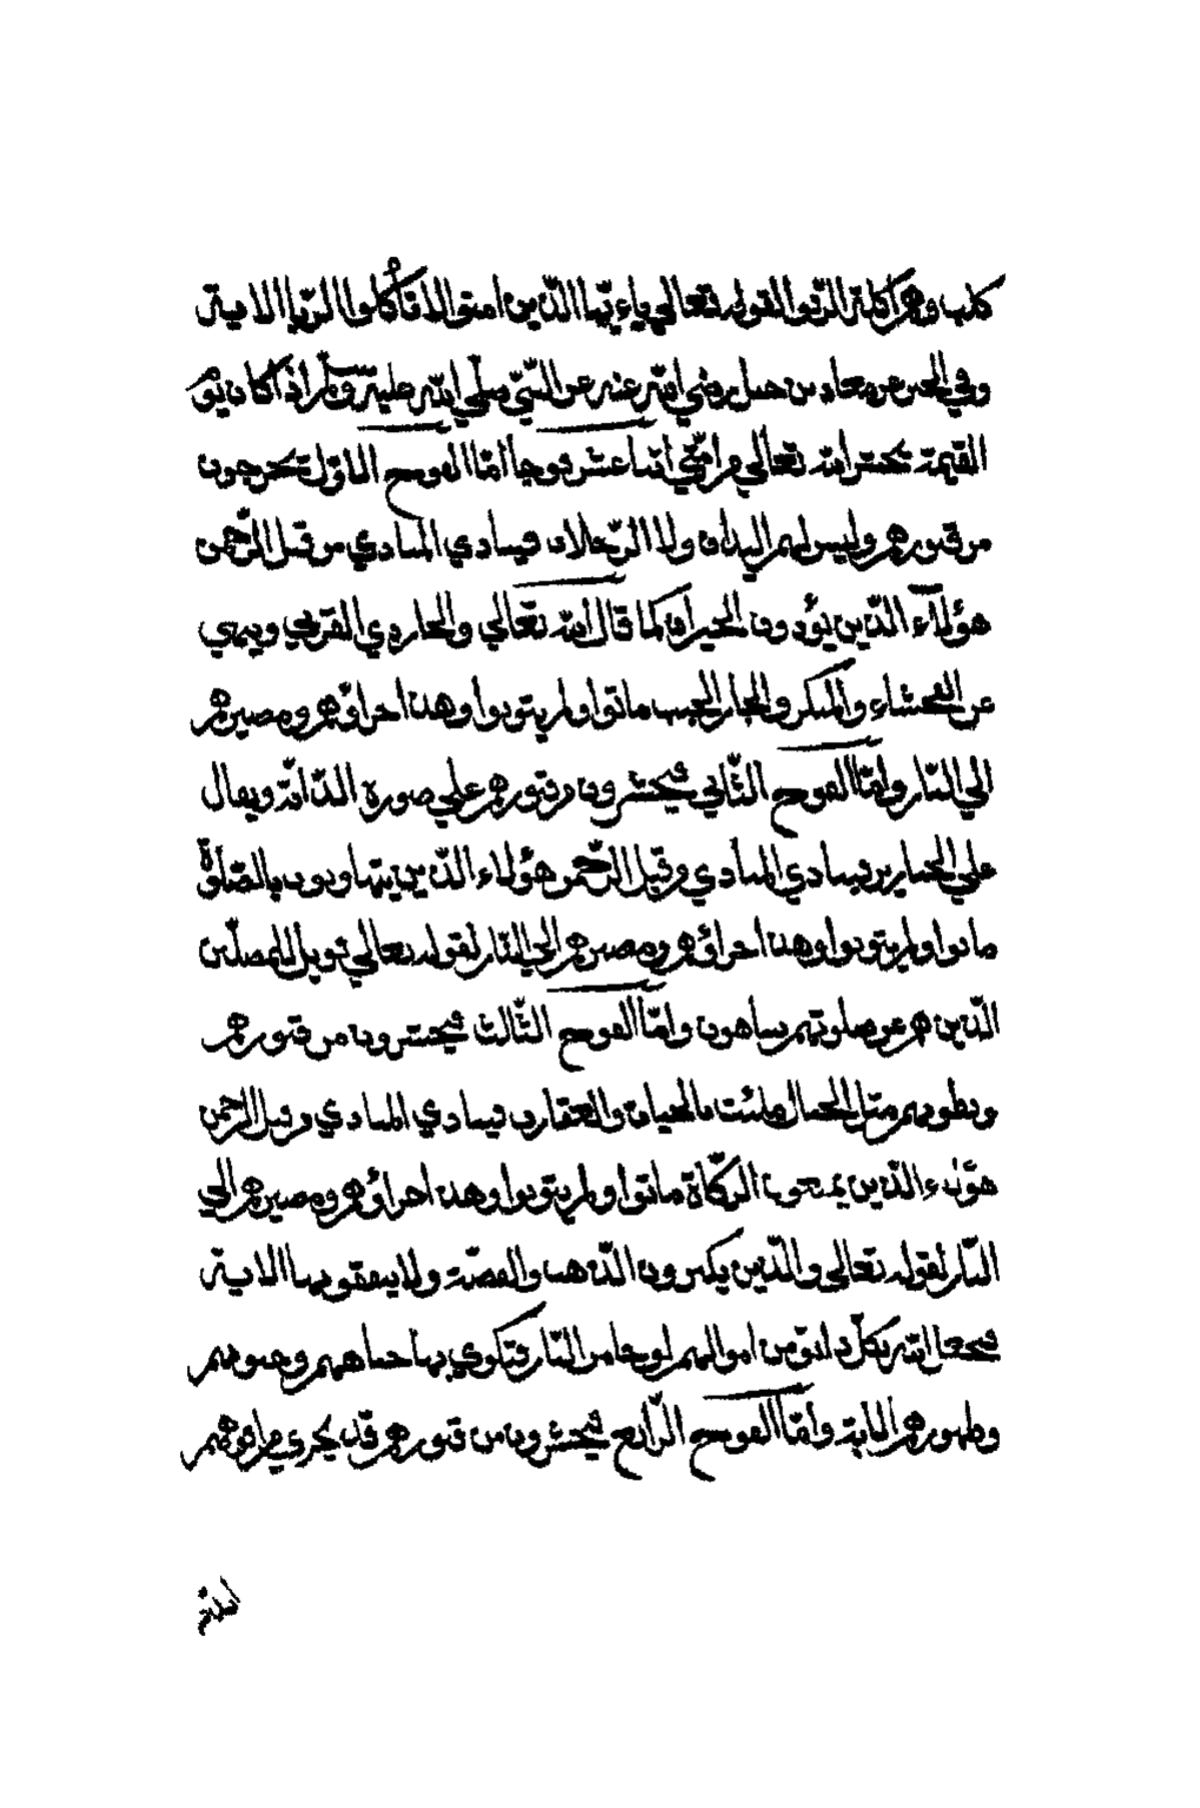 كلب وهم اكلة الربوا لقوله تعالي ياءيّها الّذين امنوا لا تأكلوا الرّبا الاية
وفي الخبر عن معاد بن جبل رضي الله عنه عن النّبيّ صلّي الله عليه وسلّم اذا كان يوم
القيمة يحشر الله تعالي من امّتي اثنا عشر فوجا امّا الفوج الاوّل يخرجون
من قبورهم وليس لهم اليدان ولا الرّجلان فينادي المنادي من قبل الرّحمن
هؤلآء الّذين يؤذون الجيران كما قال الله تعالي والجار ذي القربي وينهي
عن الفحشاء والمنكر والجار الجنب ماتوا ولم يتوبوا وهذا جزاؤهم ومصيرهم
الي النّار وامّا الفوج الثّاني يحشرون من قبورهم علي صورة الدّابّة ويقال
علي الخنازير فينادي المنادي من قبل الرّحمن هؤلاء الّذين يتهاونون بالصّلوة
ماتوا ولم يتوبوا وهذا جزاؤهم ومصيرهم الي النّار لقوله تعالي فويل للمصلّين
الّذين هم عن صلوتهم ساهون وامّا الفوج الثّالث يحشرون من قبورهم
وبطونهم مثل الجبال ملئت بالحيات والعقارب فينادي المنادي من قبل الرّحمن
هؤلاء الّذين يمنعون الزّكاة ماتوا ولم يتوبوا وهذا جزاؤهم ومصيرهم الي
النّار لقوله تعالي والّذين يكنزون الذّهب والفضّة ولا ينفقونها الاية
يجعل الله بكلّ دانق من اموالهم لوحا من النّار فتكوي بها جباههم وجنوبهم
وظهورهم الاية وامّا الفوج الرّابع يحشرون من قبورهم قد يجري من افواههم